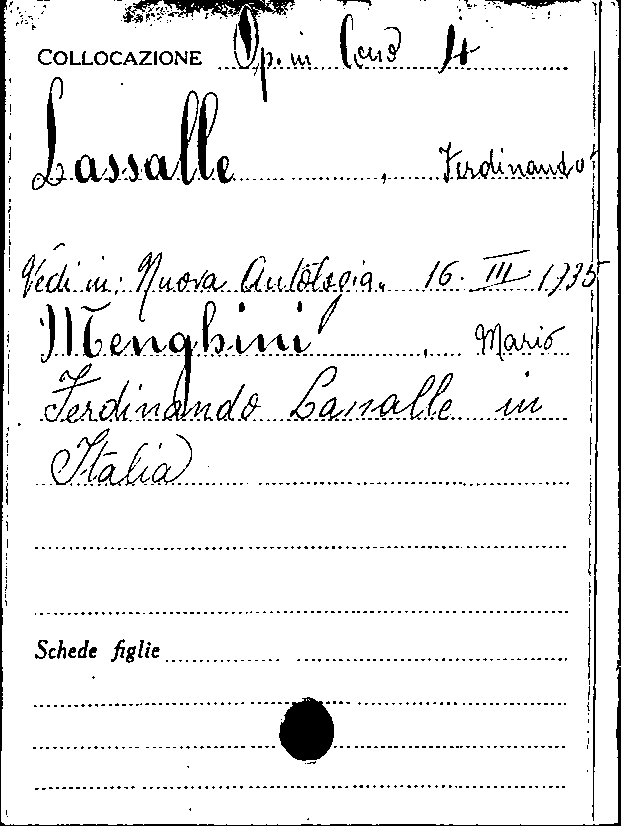 COLLOCAZIONE Op. in Corso 4
Lassalle, Ferdinando
Vedi in: Nuova Antologia. 16. III 1935
Menghini, Mario
Ferdinando Lassalle in
Italia
Schede figlie